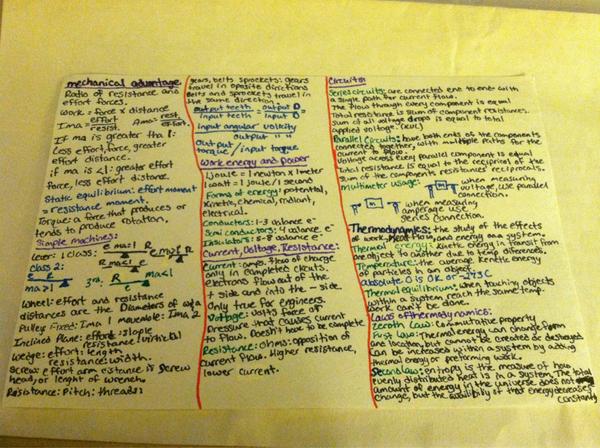 mechanical advantage
Ratio of resistance and
effort forces.
Work = force x distance
Ima = effort/resist. Ama = rest./effort.
If ma is greater tha 1:
Less effort force, greater
effort distance.
if ma is <1: greater effort
force, less effort distance.
Static equilibrium: effort moment
= resistance moment.
Torque: a force that produces or
tends to produce rotation.
Simple machines:
Lever: 1 class:
Class 2:
ma>1 3rd: ma<1
Wheel: effort and resistance
distances are the Diameters of w/a
Pulley Fixed: Ima 1 movable: Ima 2
Inclined Plane: effort: slope
resistance: virtical
wedge: effort: length
resistance: width.
Screw: effort arm distance is screw
head, or lenght of wrench.
Resistance: Pitch: threads
gears, belts sprockets: gears
travel in oposite directions
Belts and sprockets travel in
the same direction.
output teeth/input teeth = output D/input D
input angular volicity
output " "
Output torque / input torque
Work energy and power
1 joule = 1 newton x 1 meter
1 watt = 1 joule / 1 second
Forms of energy: potential,
Kinetic, chemical, radiant,
electrical.
Conductors: 1-3 valance e-
Semi conductors: 4 valance e-
Insulators: 5-8 valance e-
Current, Voltage, Resistance:
Current: amps. flow of charge
only in completed circuits.
electrons flow out of the
+ side and into the - side.
Only true for engineers.
Voltage: volts force of
Pressure that causes current
to flow. Doesn't have to be complete
Resistance: ohms: opposition of
current flow. Higher resistance,
lower current.
Circuits
Series circuits: are connected end to end with
a single path for current flow.
The flow through every component is equal
Total resistance is sum of component resistances.
Sum of all voltage drops is equal to total
applied voltage. (KVL)
Parallel circuits: have both ends of the components
connected together, with multiple paths for the
current to flow.
Voltage across every parallel component is equal
Total resistance is equal to the reciprical of the
sum of the components resistances reciprocals.
Multimeter usage: when measuring
voltage, use parallel
connection.
when measuring
amperage use
series connection.
Thermodynamics: the study of the effects
of work, heat flow, and energy on a system.
Thermal energy: kinetic energy in transit from
one object to another due to temp. differences.
Temperature: the average kenitic energy
of particles in an object.
absolute 0 is 0K or -273C
Thermal equilibrium: when touching objects
within a system reach the same temp.
Work can't be done.
Laws of thermodynamics:
zeroth Law: Commutative property
First Law: Thermal energy can change form
and location, but cannot be created or destroyed
can be increased within a system by adding
thermal energy or preforming work.
Second law: entropy is the measure of how
evenly distributed heat is in a system. The total
amount of energy in the universe does not
change, but the availibility of that energy decreases
constantly